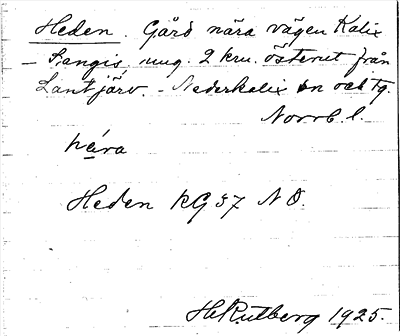 Heden. Gård nära vägen Kalix
– Sangis ung. 2 km. österut från
Lantjärv. – Nederkalix sn och tg.
Norrb. l.
hẹ́ra
Heden RG 37 N O.
H. Rutberg 1925.